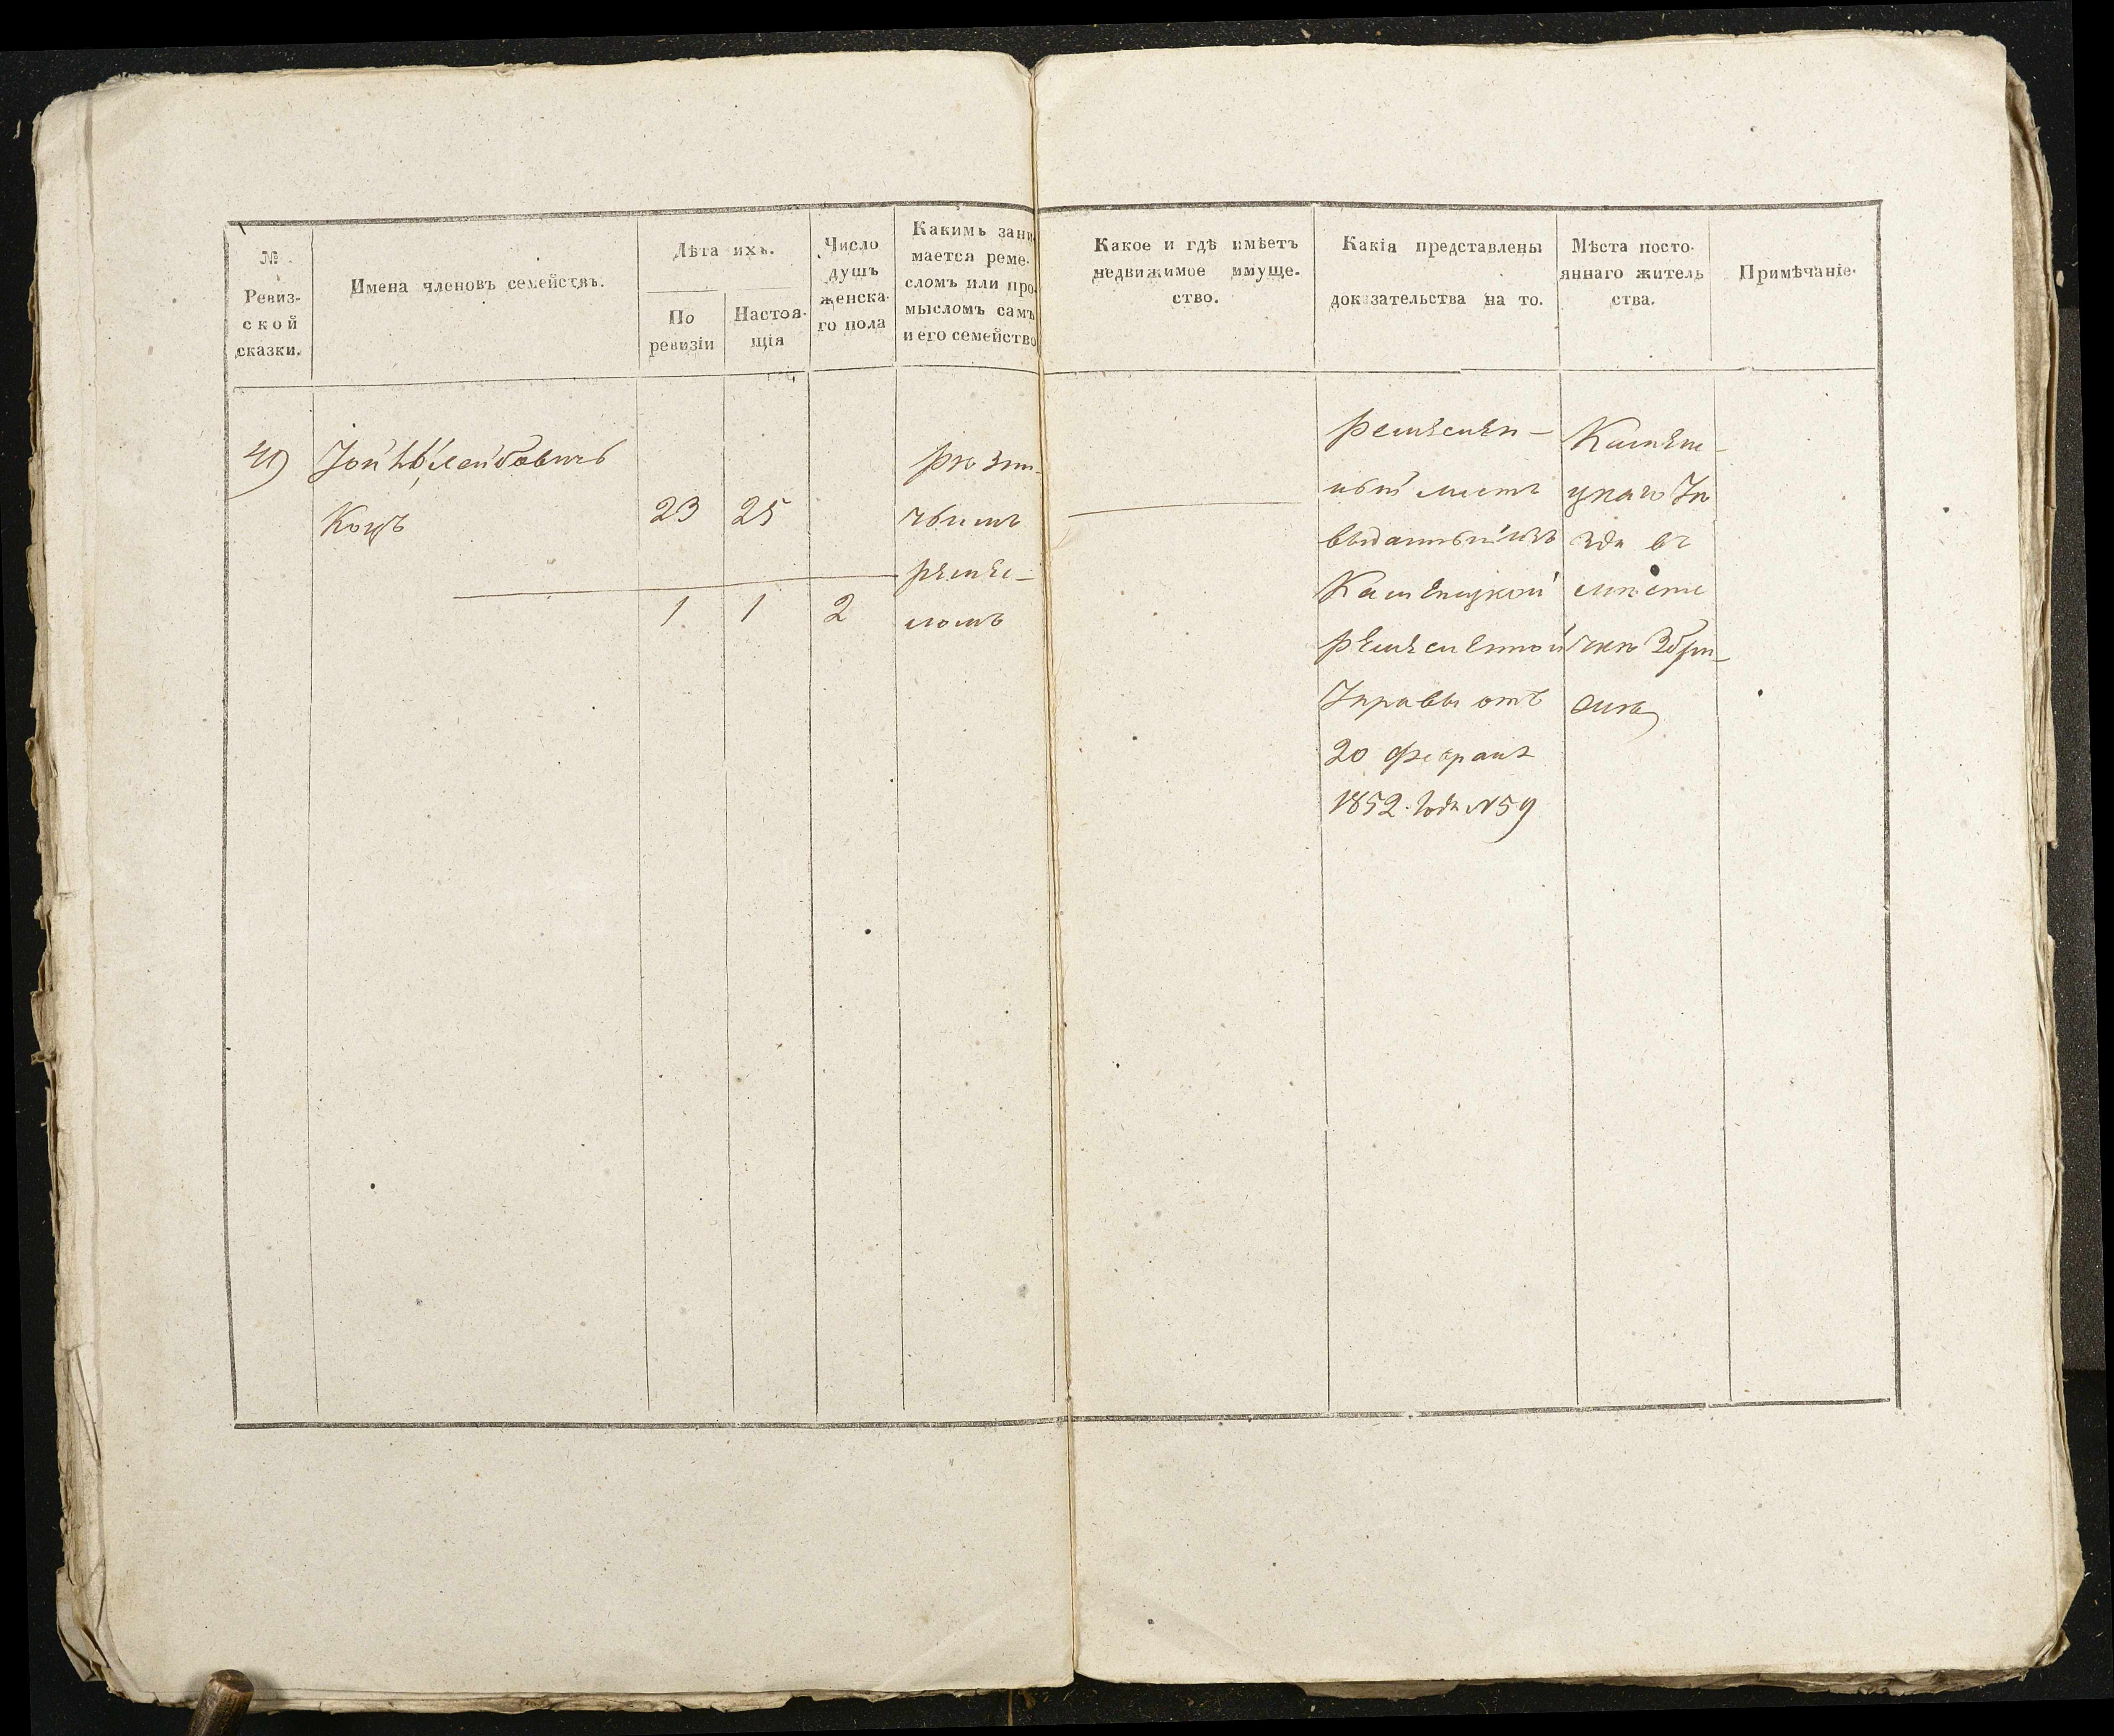 №
Ревиз-
ской
сказки.
Имена членовъ семействъ.
Лѣта ихъ.
По
ревизіи
Настоя-
щія
Число
душъ
женска-
го пола
Какимъ зани
мается реме-
сломъ или про
мысломъ самъ
и его семейство
Какое и гдѣ имѣетъ
недвижимое имуще-
ство.
Какія представлены
доказательства на то.
Мѣста посто-
яннаго житель
ства.
Примѣчаніе.
Лейбовичъ
Коцъ
23 25
1 1 2
рѣзни-
чьимъ
ремес-
ломъ
Ремеслен-
ный листъ
выданный изъ
Каменецкой
Ремесленной
Управы отъ
20 февраля
1852. Года №59
Камене-
цкаго Уѣ
зда въ
мѣсте
чкѣ